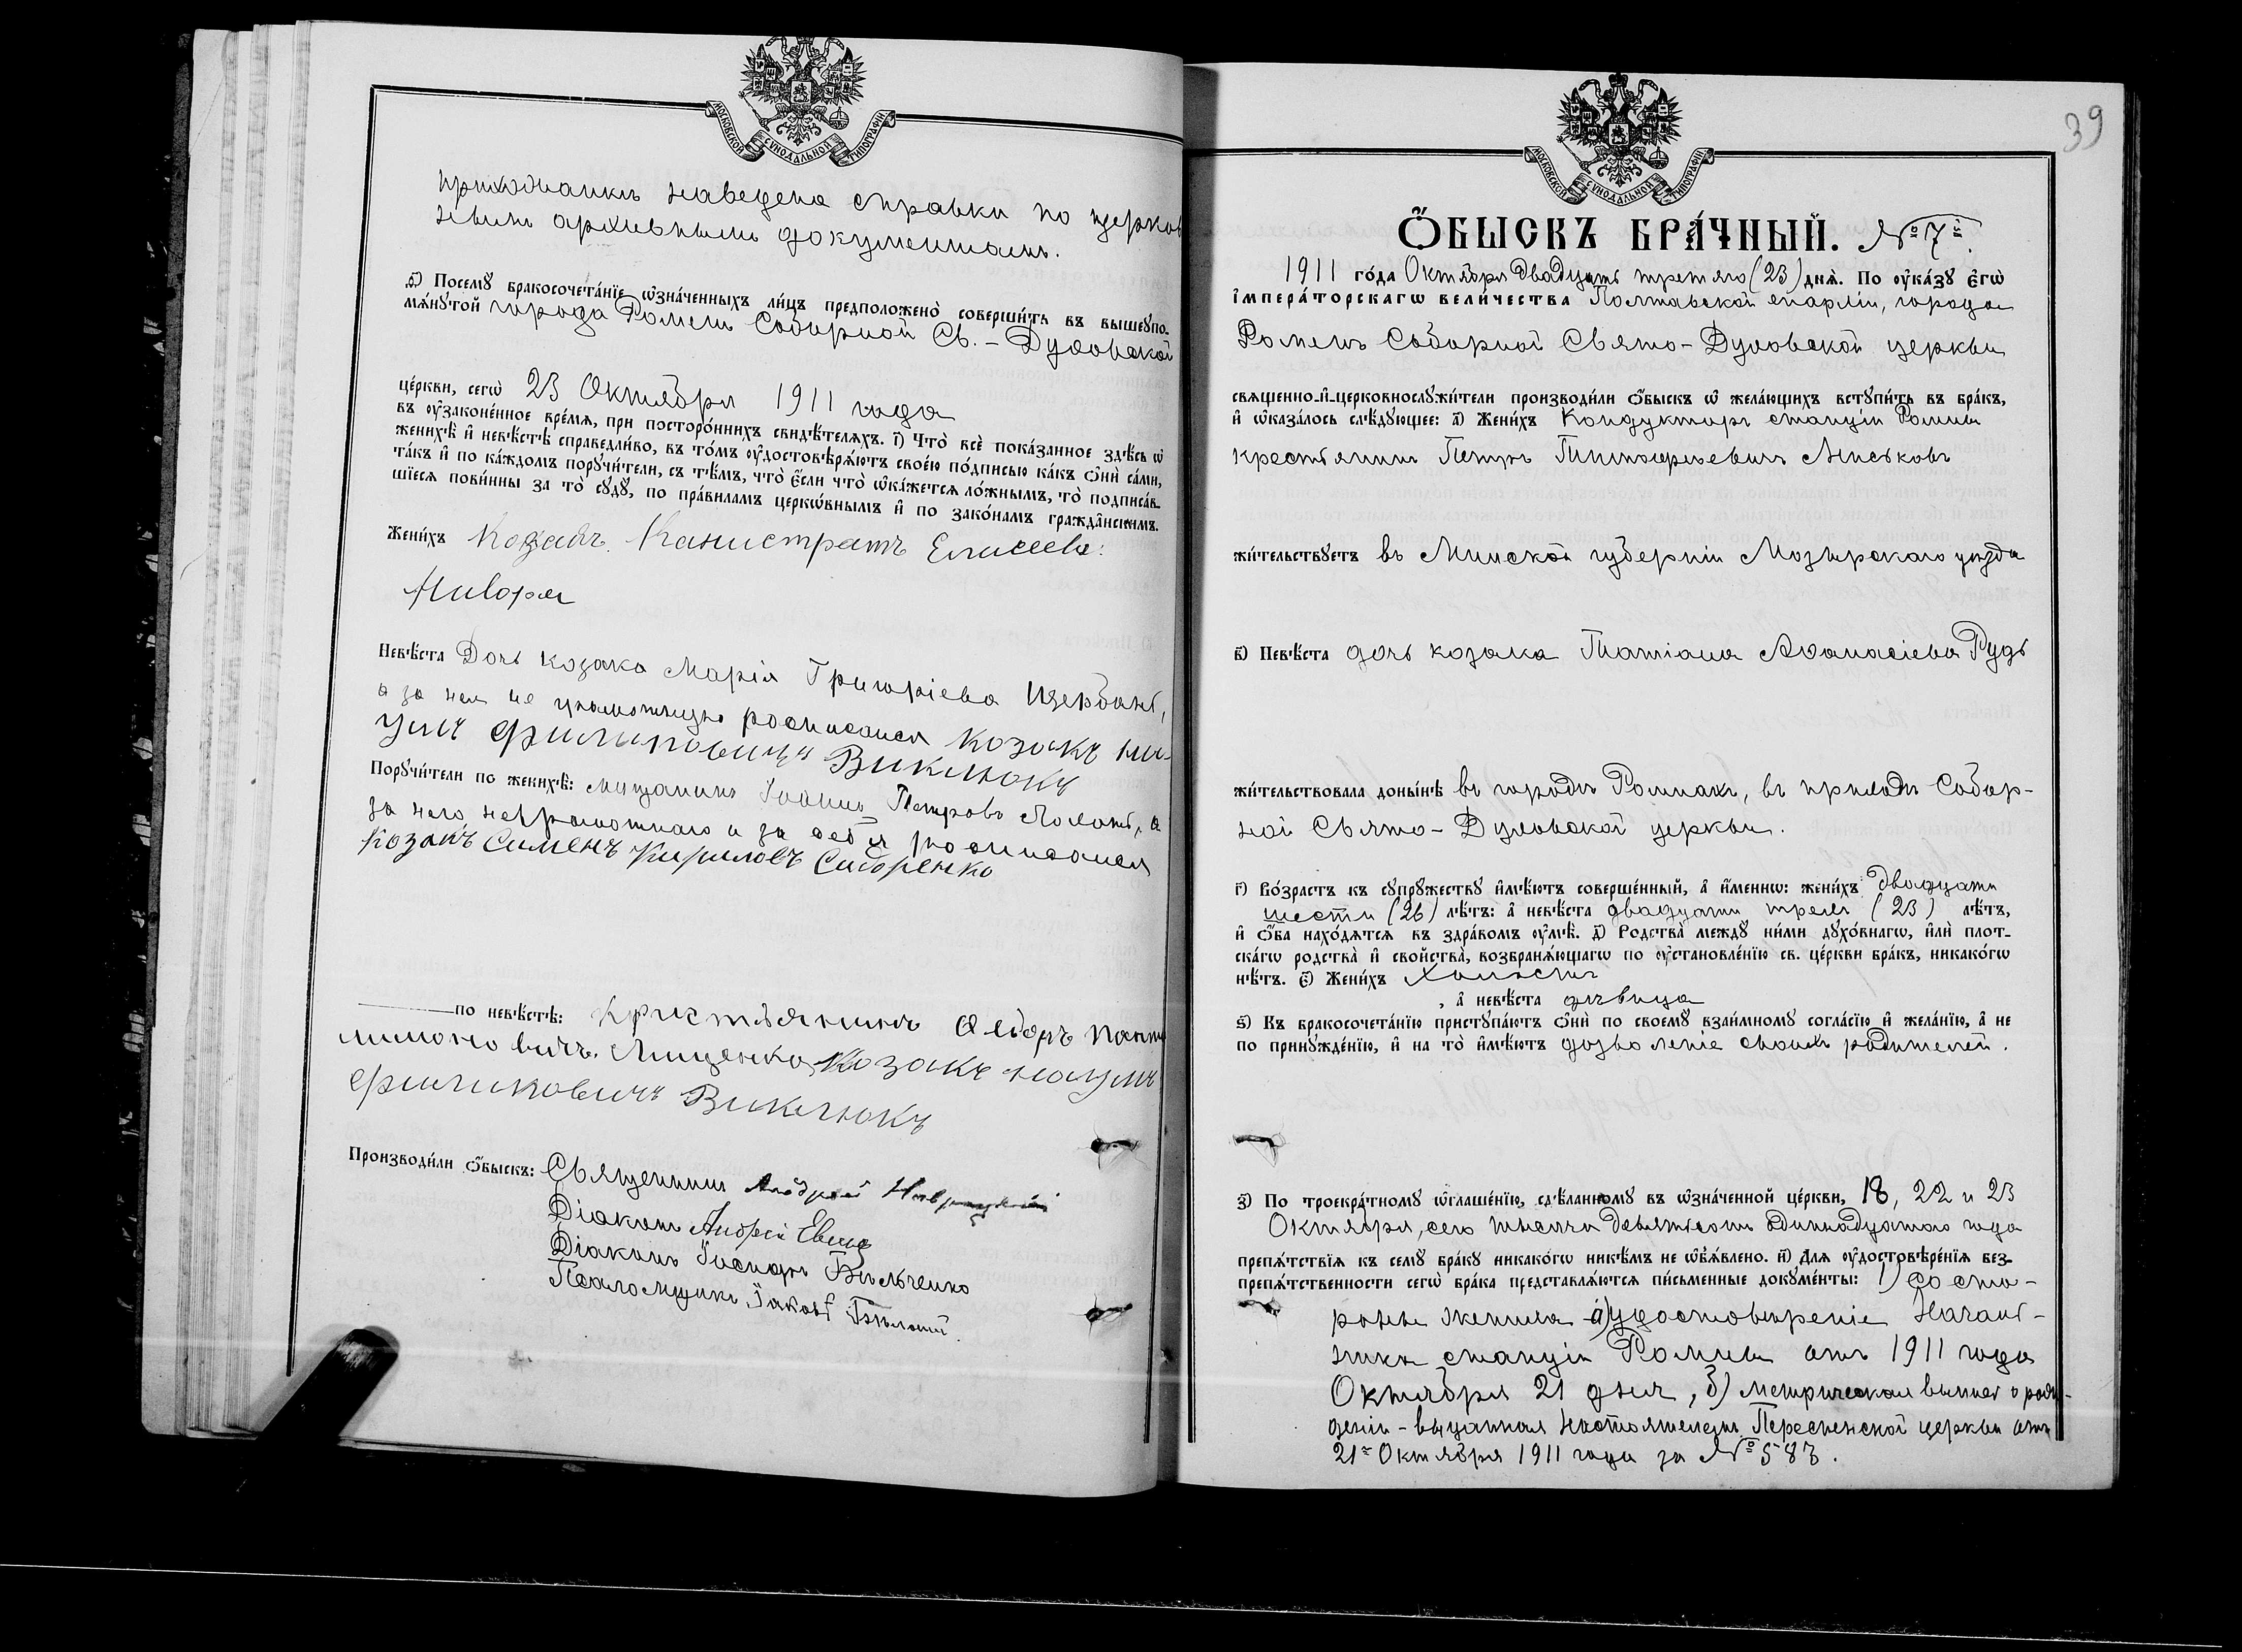 МОСКОВСКОЙ СѴНОДАЛЬНОЙ ТИПОГРАФІИ
наведена справка по церков
нымъ архивнымъ документамъ.
ѳ҃) Посемꙋ бракосочета́нїе ѡ҆зна́ченныхъ ли́цъ предположено̀ соверши́ть въ вышеꙋпо-
мѧ́нꙋтой города Роменъ Соборной Св.-Духовской
це́ркви, сегѡ̀ 23 Октября 1911 года
въ ᲂу҆законе́нное вре́мѧ, при посторо́ннихъ свидѣ́телѧхъ. і҃) Что̀ всѐ пока́занное здѣ́сь ѡ҆
женихѣ̀ и҆ невѣ́стѣ справедли́во, въ то́мъ ᲂу҆достовѣрѧ́ютъ свое́ю по́дписью ка́къ ѻ҆нѝ са́ми,
та́къ и҆ по ка́ждомъ порꙋчи́тели, съ тѣ́мъ, что̀ є҆́сли что̀ ѡ҆ка́жетсѧ ло́жнымъ, то̀ подписа́в-
шїесѧ пови́нны за то̀ сꙋдꙋ̀, по пра́виламъ церкѡ́внымъ и҆ по зако́намъ гражда̑нскимъ.
Жени́хъ Козакъ Канистратъ Елисеевъ
Нивѣ́ста Дочь козака Марія Григоріева Щербань,
а за нея не грамотную росписался козакъ На-
умъ Филиповичъ Виклюкъ
Порꙋчи́тели по женихѣ̀: мѣщанинъ Іоаннъ Петровъ а
за него неграмотнаго и за себя росписался
козакъ Сименъ Кириловъ Сидоренко
по невѣ́стѣ: Кристьянинъ Ѳедоръ Панте
лимоновичъ Лищенко, козакъ Наумъ
Филиповичъ Виклюкъ
Производи́ли ѻ҆́быскъ: Священникъ Андрей
Діаконъ Андрей
Діаконъ Іосифъ Бѣльченко
Псаломщикъ Іаковъ
39
МОСКОВСКОЙ СѴНОДАЛЬНОЙ ТИПОГРАФІИ
Ѻ҆́БЫСКЪ БРА́ЧНЫЙ. № 7й.
1911 го́да Октября двадцать третьяго (23) днѧ̀. По ᲂу҆ка́зꙋ є҆гѡ̀
і҆мпера́торскагѡ вели́чества Полтавской епархіи, города
Роменъ Соборной Свято-Духовской церкви
свѧщенно-и҆-церковнослꙋжи́тели производи́ли ѻ҆́быскъ ѡ҆ жела́ющихъ встꙋпи́ть въ бра́къ,
и҆ ѡ҆каза́лось слѣ́дꙋющее: а҃) Жени́хъ Кондукторъ станціи Ромны
крестьянинъ Петръ Тимоѳеевичъ
жи́тельствꙋетъ въ Минской губерніи Мозырскаго уѣзда
в҃) Невѣ́ста дочь козака Татіана Аѳанасіева Рудь
жи́тельствовала доны́нѣ въ городѣ Ромнахъ, въ приходѣ Собор-
ной Свято-Духовской церкви.
г҃) Во́зрастъ къ сꙋпрꙋ́жествꙋ и҆мѣ́ютъ соверше́нный, а҆ и҆́меннѡ: жени́хъ двадцати
шести (26) лѣ́тъ: а҆ невѣ́ста двадцати трехъ (23) лѣ́тъ,
и҆ ѻ҆́ба нахо́дѧтсѧ въ здра́вомъ ᲂу҆мѣ̀. д҃) Родства̀ междꙋ̀ ни́ми дꙋхо́внагѡ, и҆лѝ плот-
ска́гѡ родства̀ и҆ сво́йства̀, возбранѧ́ющагѡ по ᲂу҆становле́нїю св. це́ркви бра́къ, никако́гѡ
нѣ́тъ. є҃) Жени́хъ Холостъ
, а҆ невѣ́ста дѣвица
ѕ҃) Къ бракосочета́нїю пристꙋпа́ютъ ѻ҆нѝ по своемꙋ̀ взаи́мномꙋ согла́сїю и҆ жела́нїю, а҆ не
по принꙋжде́нїю, и҆ на то̀ и҆мѣ́ютъ дозволеніе своихъ родителей.
з҃) По троекра́тномꙋ ѡ҆глаше́нїю, сдѣ́ланномꙋ въ ѡ҆зна́ченной це́ркви, 18, 22 и 23
Октября, сего тысяча девятьсотъ одиннадцатаго года
препѧ́тствїѧ къ семꙋ̀ бра́кꙋ никако́гѡ никѣ́мъ не ѡ҆б̾ѧ́влено. и҃) Длѧ̀ ᲂу҆достовѣре́нїѧ без-
препѧ́тственности сегѡ̀ бра́ка представлѧ́ютсѧ пи́сьменные докꙋме́нты: 1) Со сто-
роны жениха а) удостовѣреніе Началь-
ника станціи Ромны отъ 1911 года
Октября 21 дня, б) метрическая выпись о рож-
деніи - выданная Настоятелемъ церкви отъ
21го Октября 1911 года за № 587.